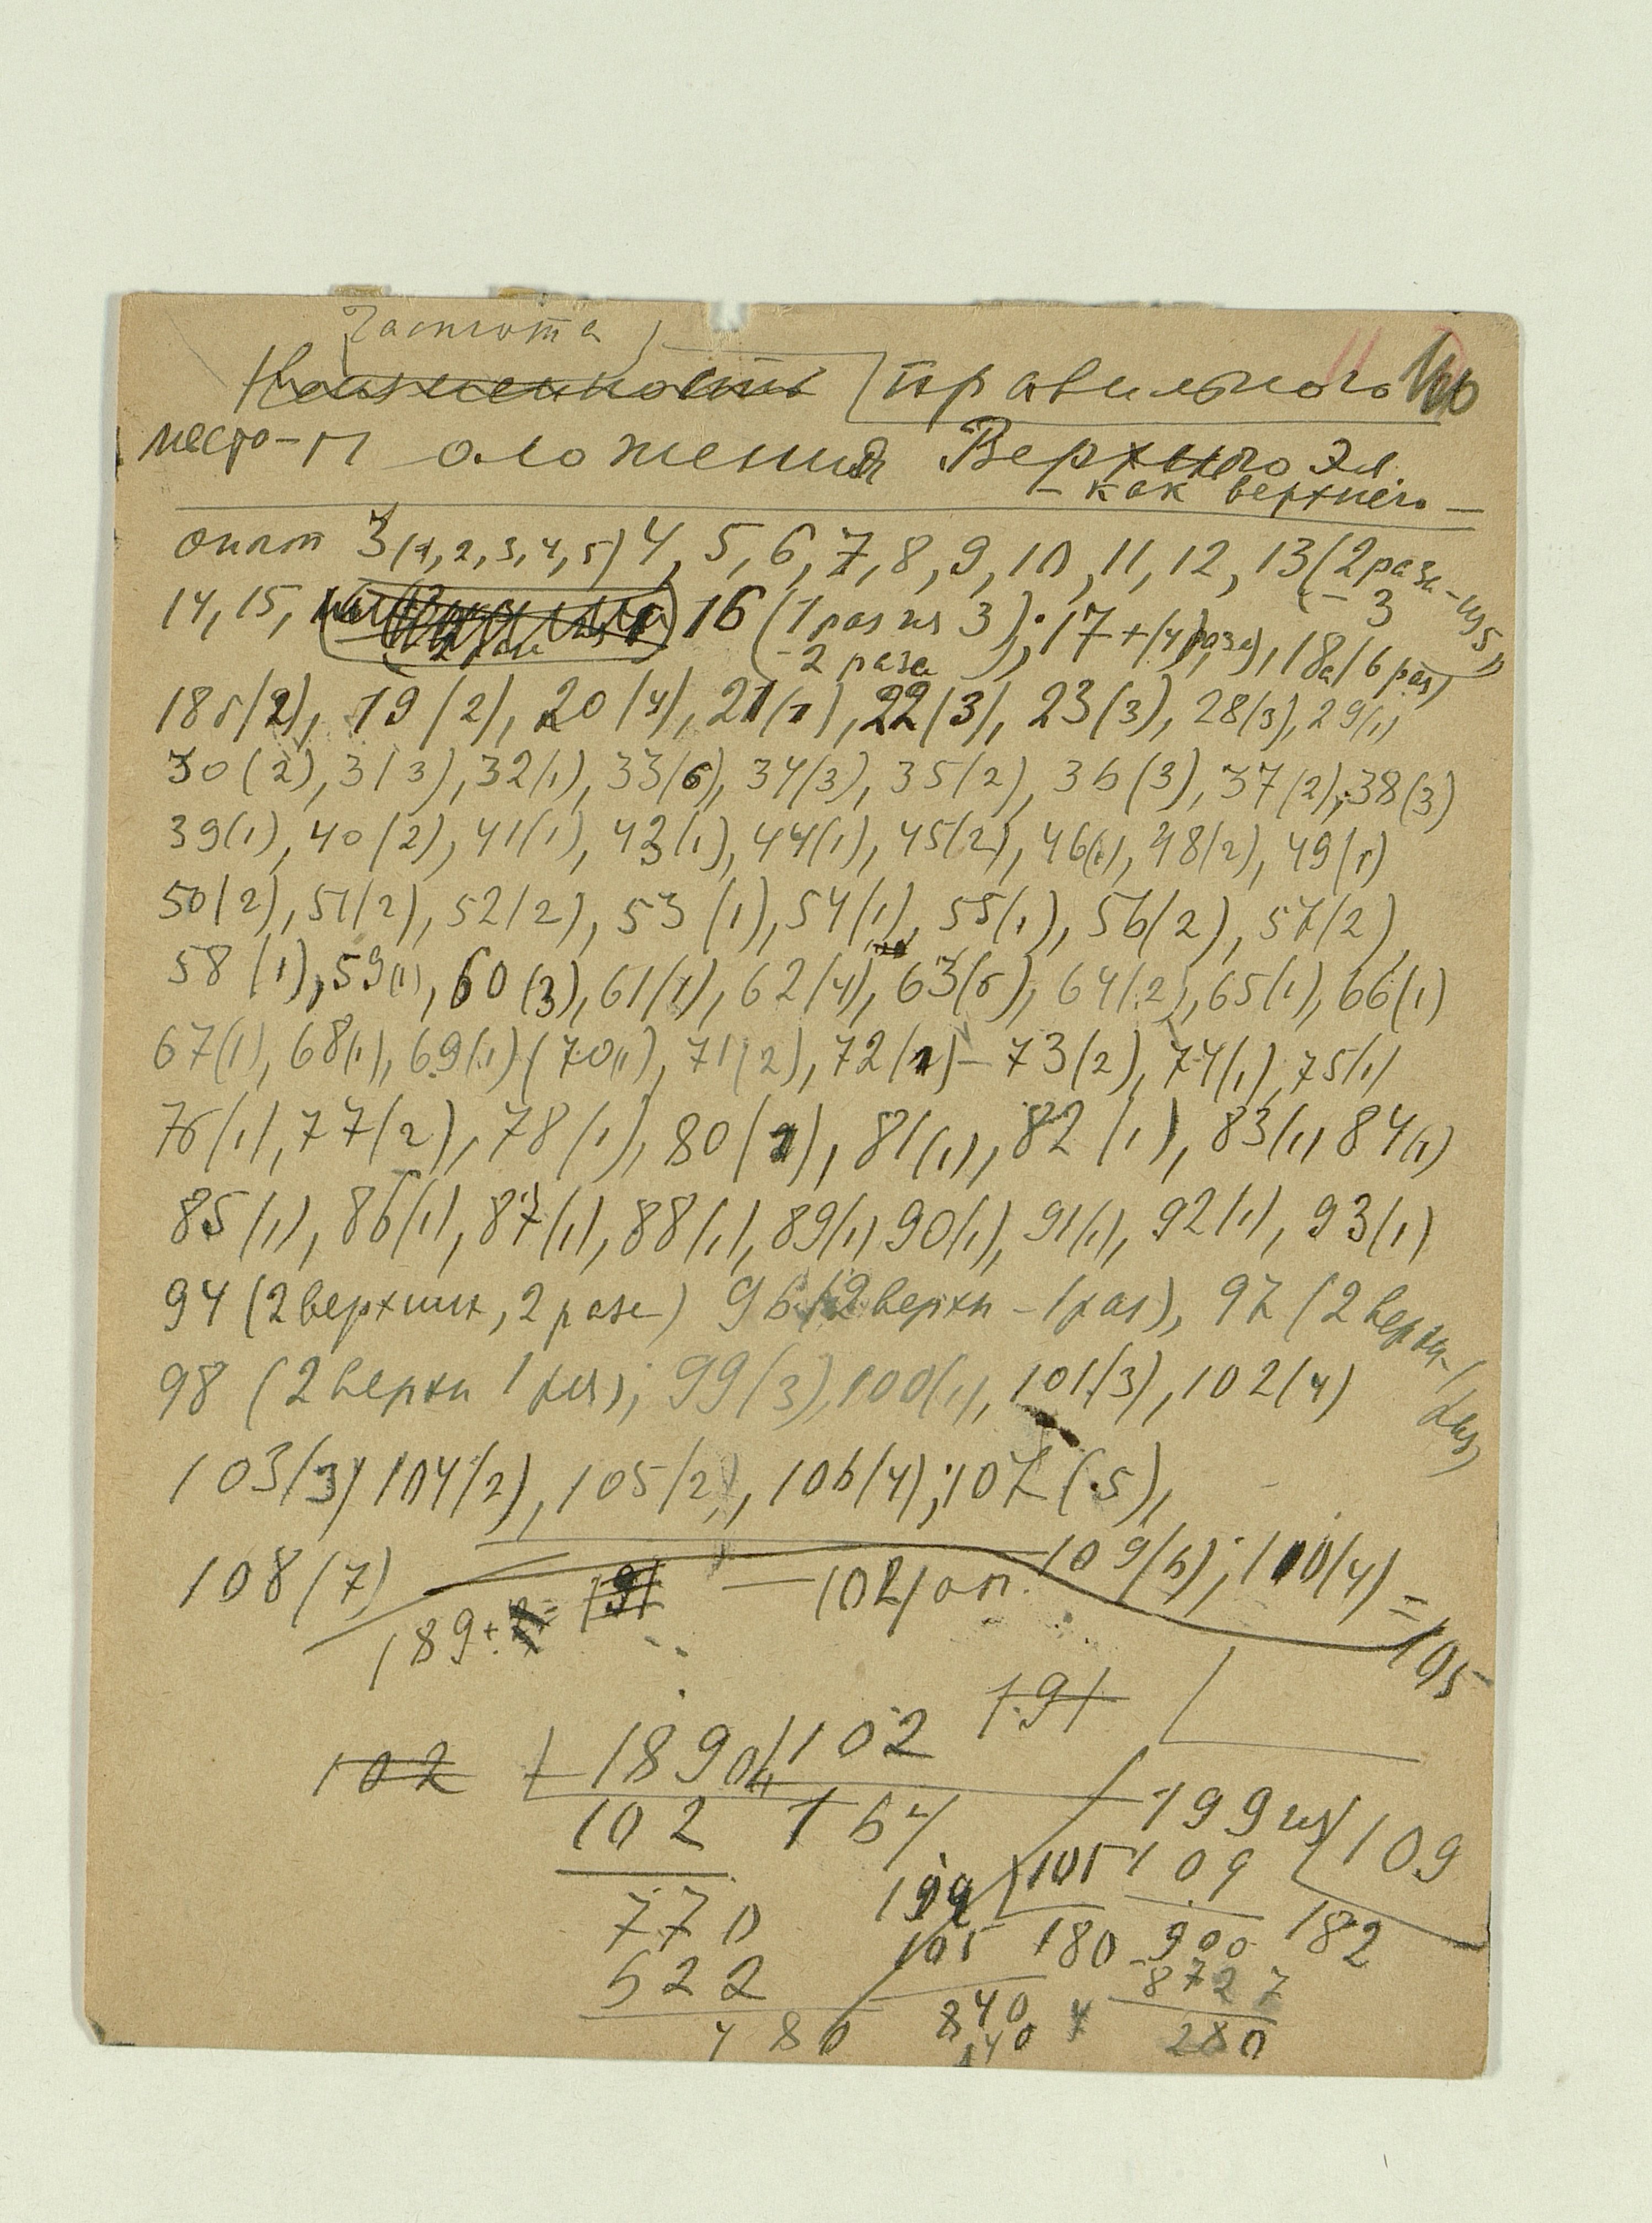 Частота
правильного
место-положения Верхнего Эл.
– как верхнего –
опыт 3 (1, 2, 3, 4, 5) 4, 5, 6, 7, 8, 9, 10, 11, 12, 13 (2 раза – из 5)
– 3
14, 15, 16 (1 раз из 3); 17 + (4 раза), 18а (6 раз)
– 2 раза
18б (2), 19 (2), 20 (4), 21 (1), 22 (3), 23 (3), 28 (3), 29 (1)
30 (2), 31 3), 32 (1), 33 (6), 34 (3), 35 (2), 36 (3), 37 (2), 38 (3)
39 (1), 40 (2), 41 (1), 43 (1), 44 (1), 45 (2), 46 (1), 48 (2), 49 (1)
50 (2), 51 (2), 52 (2), 53 (1), 54 (1), 55 (1), 56 (2), 57 (2),
58 (1), 59 (1), 60 (3), 61 (1), 62 (4), 63 (5), 64 (2), 65 (1), 66 (1)
67 (1), 68 (1), 69 (1) (70 (1), 71 (2), 72 (1) – 73 (2), 74 (1), 75 (1)
76 (1), 77 (2), 78 (1), 80 (1), 81 (1), 82 (1), 83 (1) 84 (1)
85 (1), 86 (1), 87 (1), 88 (1), 89 (1) 90 (1), 91 (1), 92 (1), 93 (1)
94 (2 верхних, 2 раза) 96 (2 верхн – 1 раз), 97 (2 верхн – 1 раз)
98 (2 верхн 1 раз); 99 (3), 100 (1), 101 (3), 102 (4)
103 (3) 104 (2), 105 (2), 106 (4); 107 (5),
108 (7) 109 (6); 110 (4) = 195
189 + 2 = 191 — 102 оп.
191
102 1890 102
102 1 64
199 из 109
770 199 105 109 182
622 105 180 900
480 840 872 7
140 280